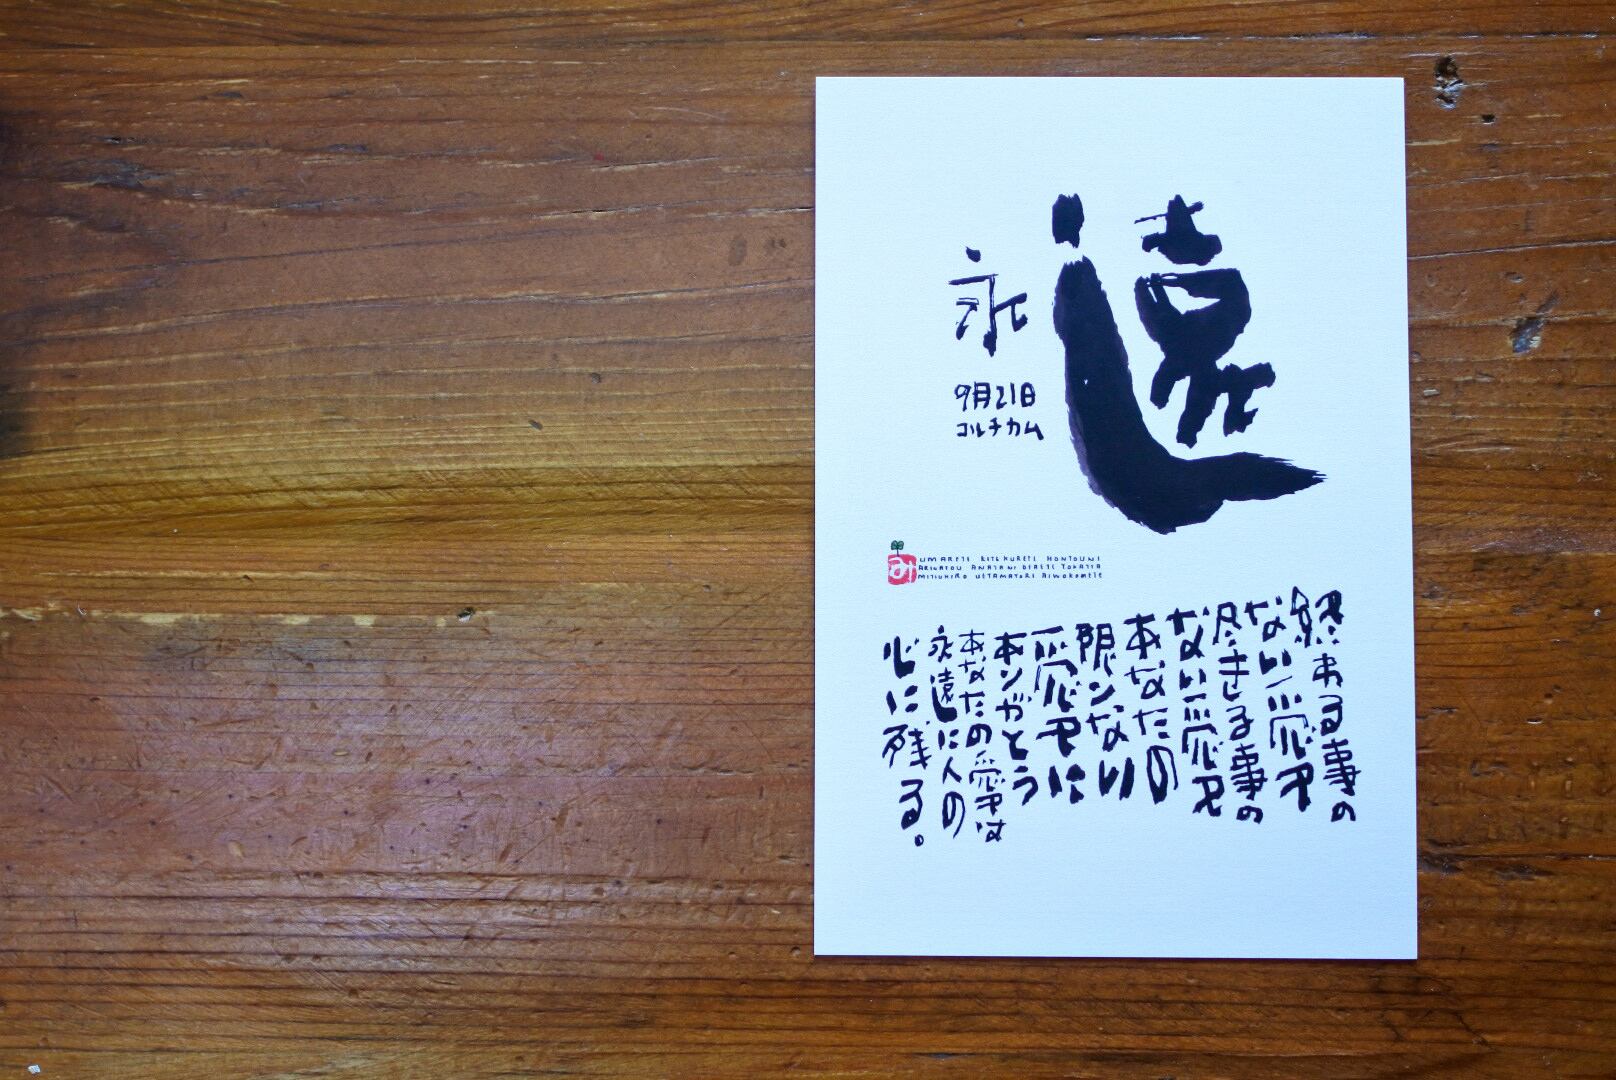 永遠
9月21日
コルチカム
UMARETE KITEKURETE HONTOUNI
ARIGATOU ANATANI DEAETE YOKATTA
み
終わる事の
ない愛や
尽きる事の
ない愛や
あなたの
限りない
愛やに
ありがとう
あなたの愛は
永遠に人の
心に残る。